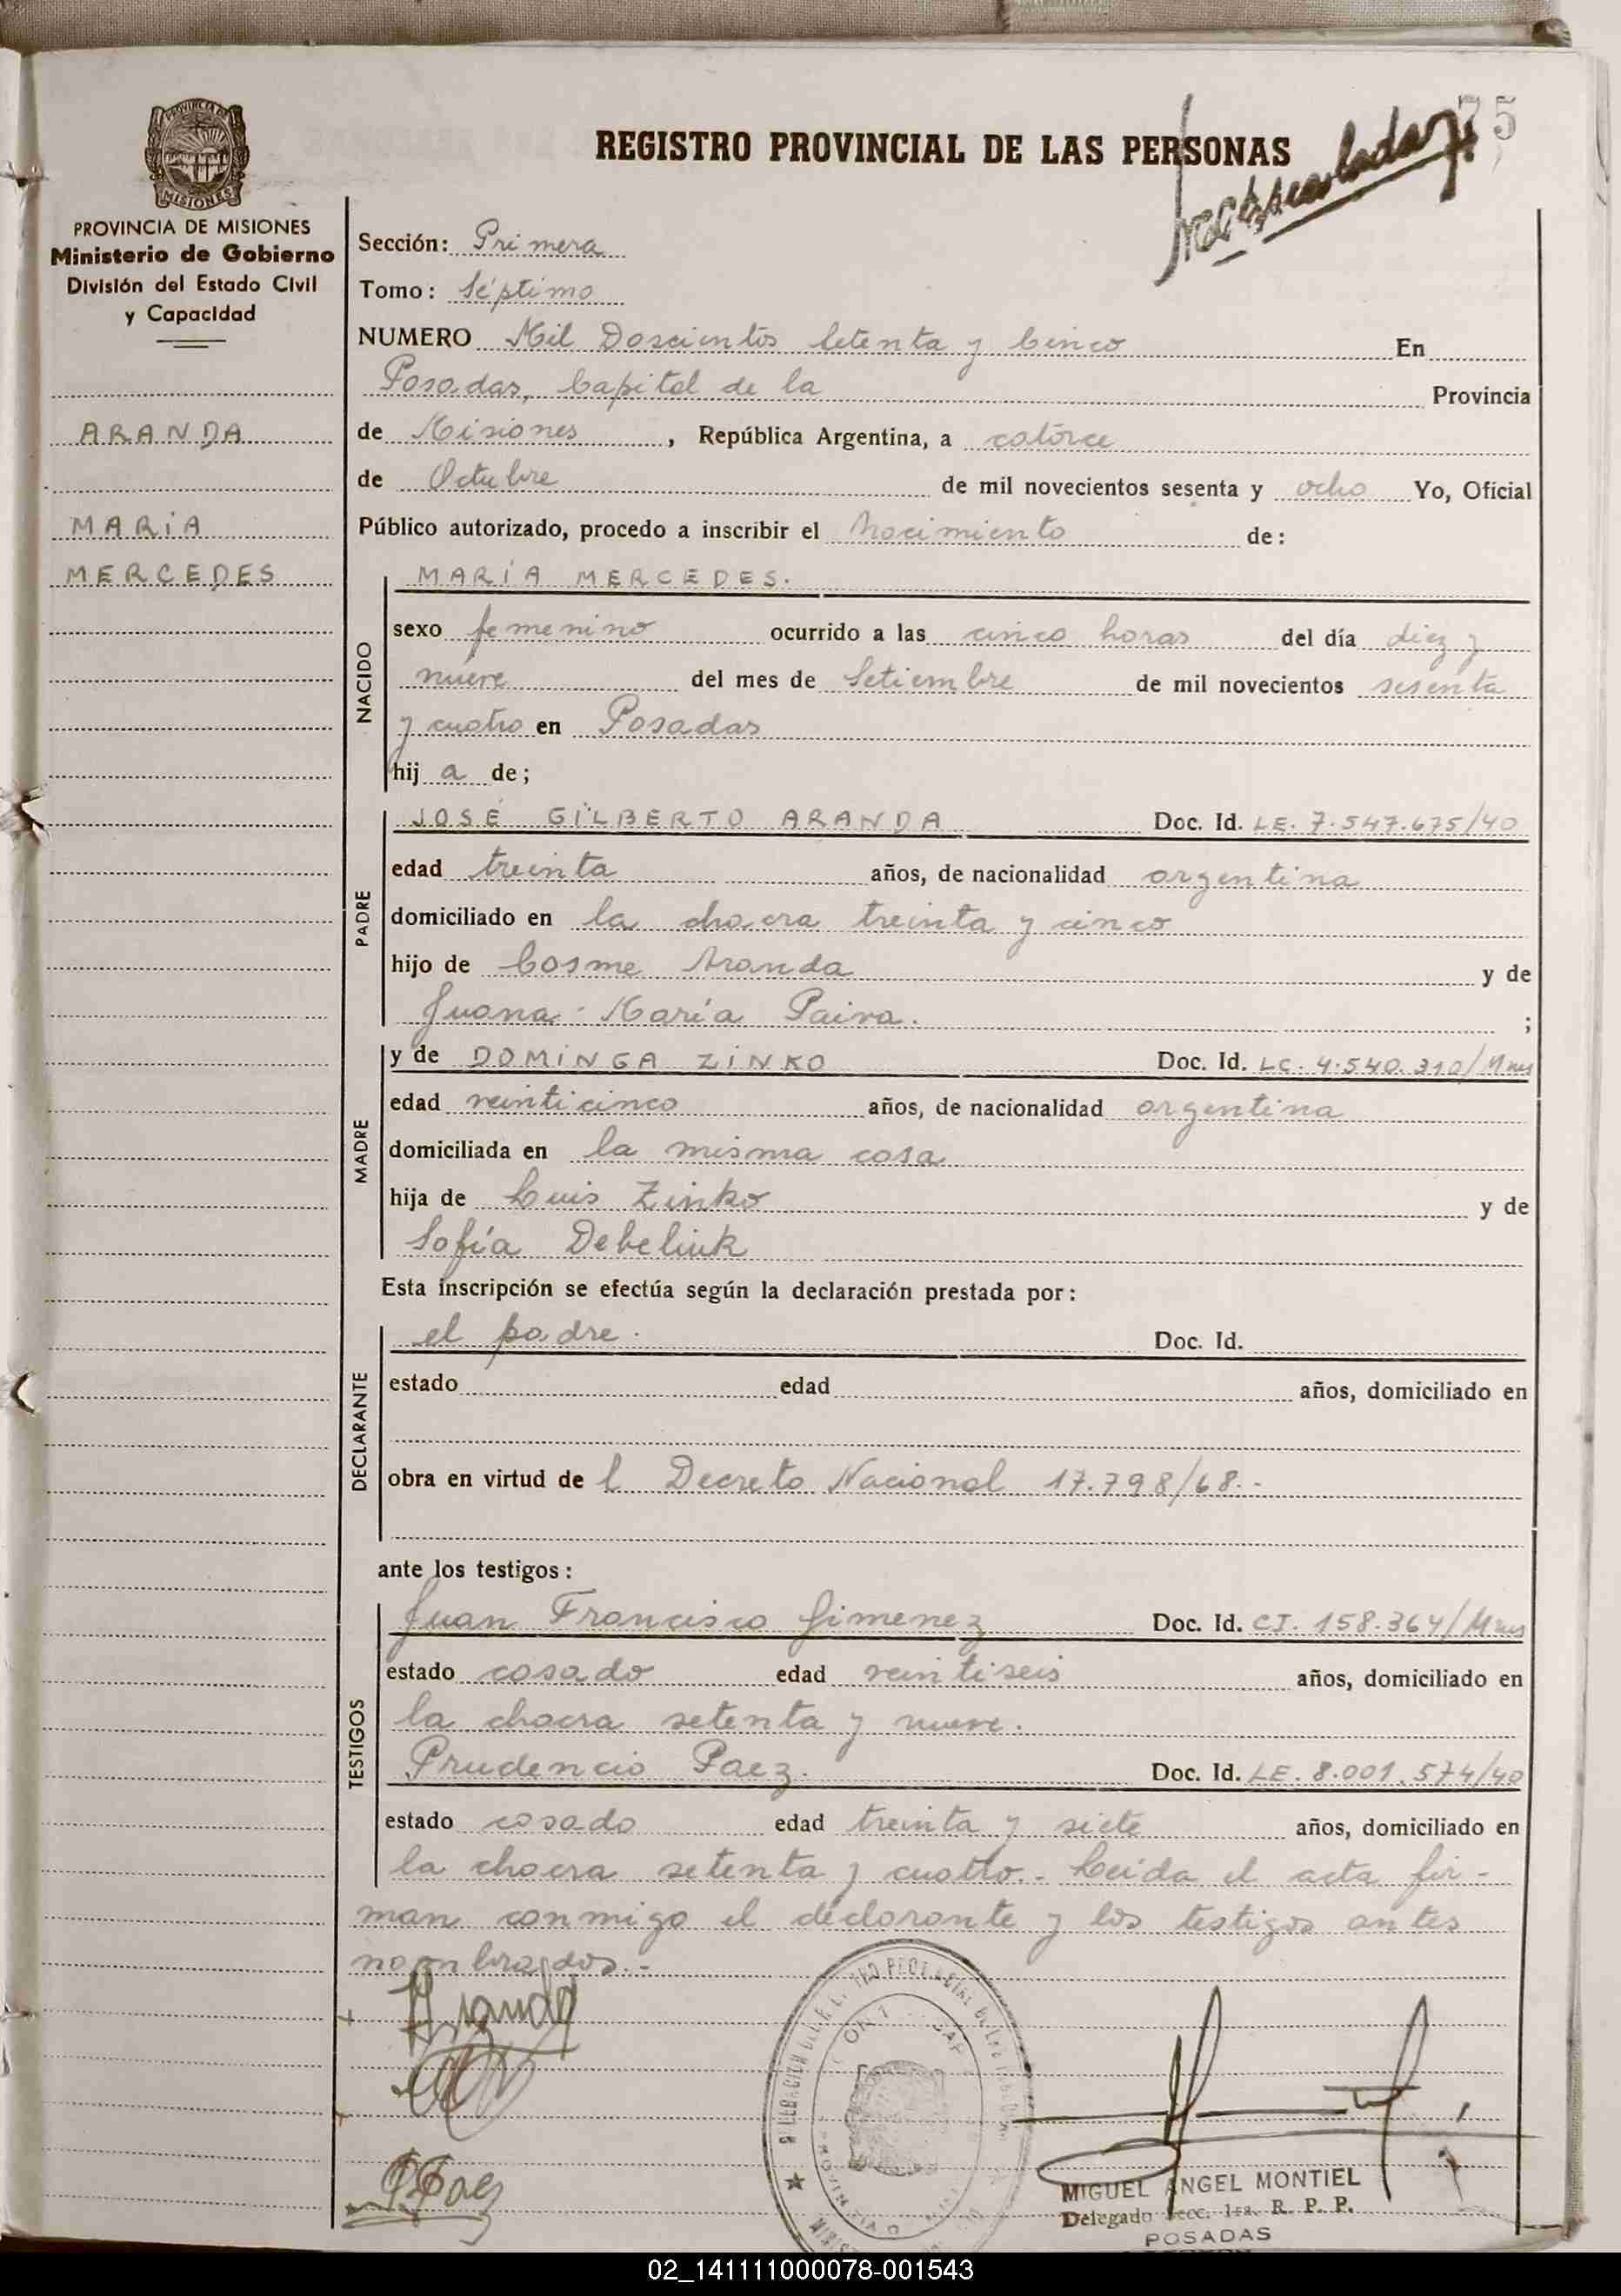 75
REGISTRO PROVINCIAL DE LAS PERSONAS
PROVINCIA DE MISIONES
Ministerio de Gobierno
División del Estado Civil
y Capacidad
ARANDA
MARÍA
MERCEDES
Sección: Primera
Tomo: Séptimo
NUMERO Mil Doscientos Setenta y Cinco En
Posadas, Capital de la Provincia
de Misiones, República Argentina, a catorce
de Octubre de mil novecientos sesenta y ocho Yo, Oficial
Público autorizado, procedo a inscribir el Nacimiento de:
NACIDO
MARÍA MERCEDES.
sexo femenino ocurrido a las cinco horas del día diez y
nueve del mes de Setiembre de mil novecientos sesenta
y cuatro en Posadas
hij a de;
PADRE
JOSÉ GILBERTO ARANDA Doc. Id. LE. 7.547.675/40
edad treinta años, de nacionalidad argentina
domiciliado en la chacra treinta y cinco
hijo de Cosme Aranda y de
Juana María Paiva. ;
MADRE
y de DOMINGA ZINKO Doc. Id. LC. 4.540.310/Mnes
edad veinticinco años, de nacionalidad argentina
domiciliada en la misma casa
hija de Luis Zinko y de
Sofía Debeliuk
Esta inscripción se efectúa según la declaración prestada por:
DECLARANTE
el padre. Doc. Id.
estado edad años, domiciliado en
obra en virtud de l Decreto Nacional 17.798/68.-
ante los testigos:
TESTIGOS
Juan Francisco Gimenez Doc. Id. CI. 158.364/Mnes
estado casado edad veintiseis años, domiciliado en
la chacra setenta y nueve.
Prudencio Paez. Doc. Id. LE. 8.001.574/40
estado casado edad treinta y siete años, domiciliado en
la chacra setenta y cuatro.- Leida el acta fir-
man conmigo el declarante y los testigos antes
nombrados.-
Aranda
PPaez
MIGUEL ANGEL MONTIEL
Delegado Secc. 1ra. R. P. P.
POSADAS
02_141111000078-001543